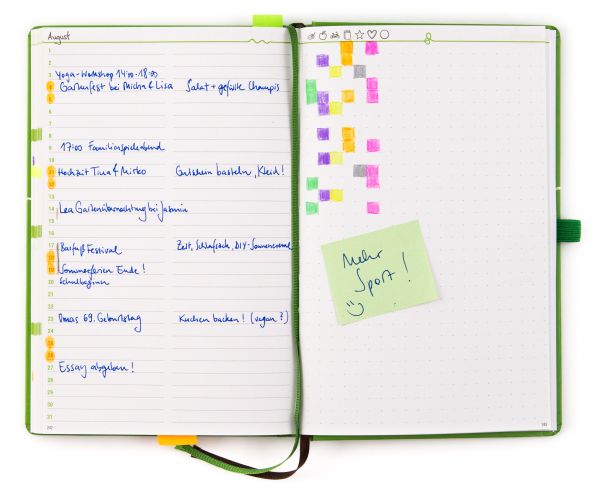 August
1
2
3 Yoga-Workshop 14:00-18:00
4 Gartenfest bei Micha & Lisa Salat + gefüllte Champis
5
6
7
8
9 17:00 Familienspieleabend
10
11 Hochzeit Tina & Mirko Gutschein basteln, Kleid!
12
13
14 Lea Gartenübernachtung bei Jasmin
15
16
17 Barfuß Festival Zelt, Schlafsack, DIY-Sonnencreme
18
19 Sommerferien Ende!
20 Schulbeginn
21
22
23 Omas 69. Geburtstag Kuchen backen! (vegan?)
24
25
26
27 Essay abgeben!
28
29
30
31
Mehr
Sport!